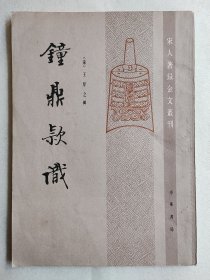 宋人著録金文叢刊
〔宋〕王厚之輯
鐘鼎款識
中華書局